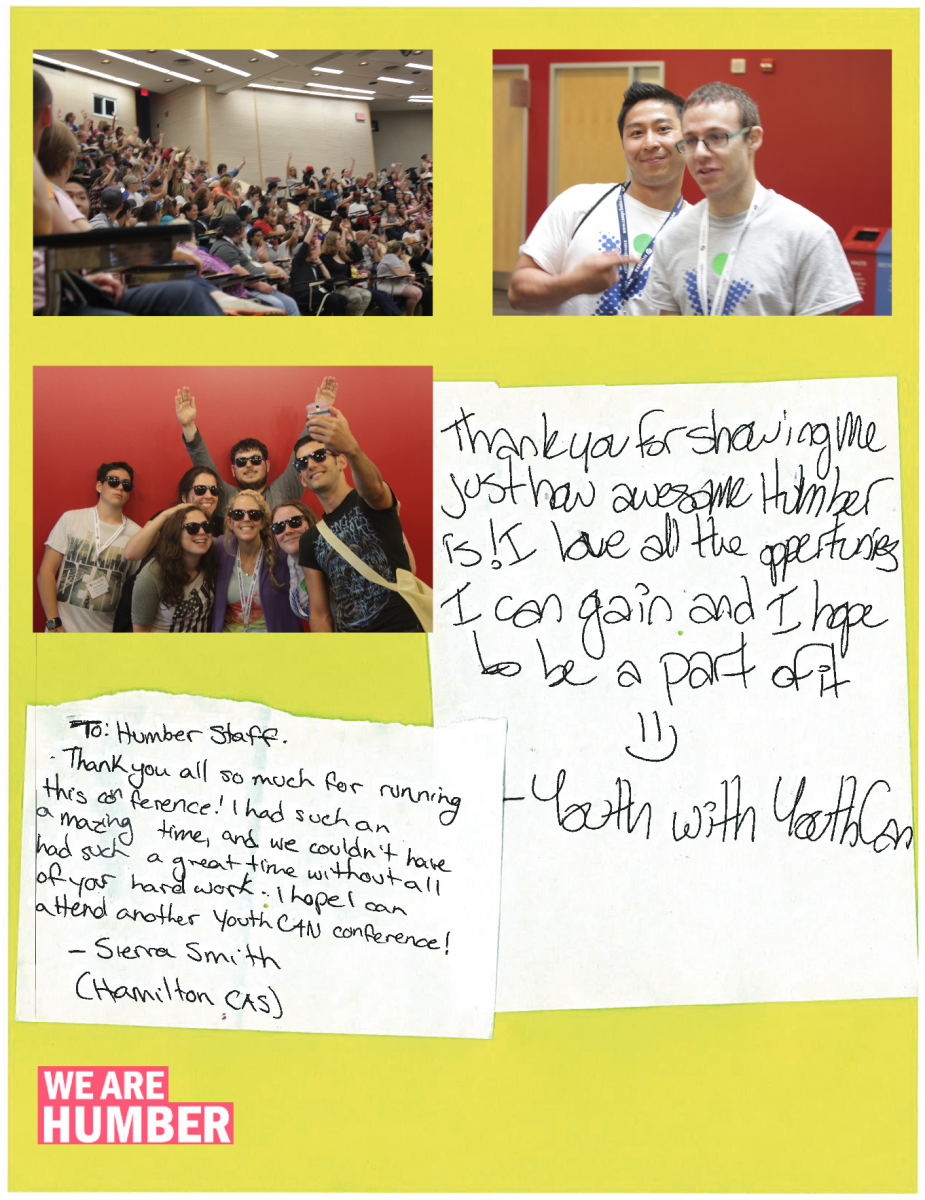 Thank you for showing me
just how awesome Humber
is! I love all the oppertunies
I can gain and I hope
to be a part of it
=)
- Youth with YouthCan
To: Humber Staff.
Thank you all so much for running
this conference! I had such an
amazing time, and we couldn't have
had such a great time without all
of your hard work. I hope I can
attend another YouthCAN conference!
- Sierra Smith
(Hamilton CAS)
WE ARE
HUMBER